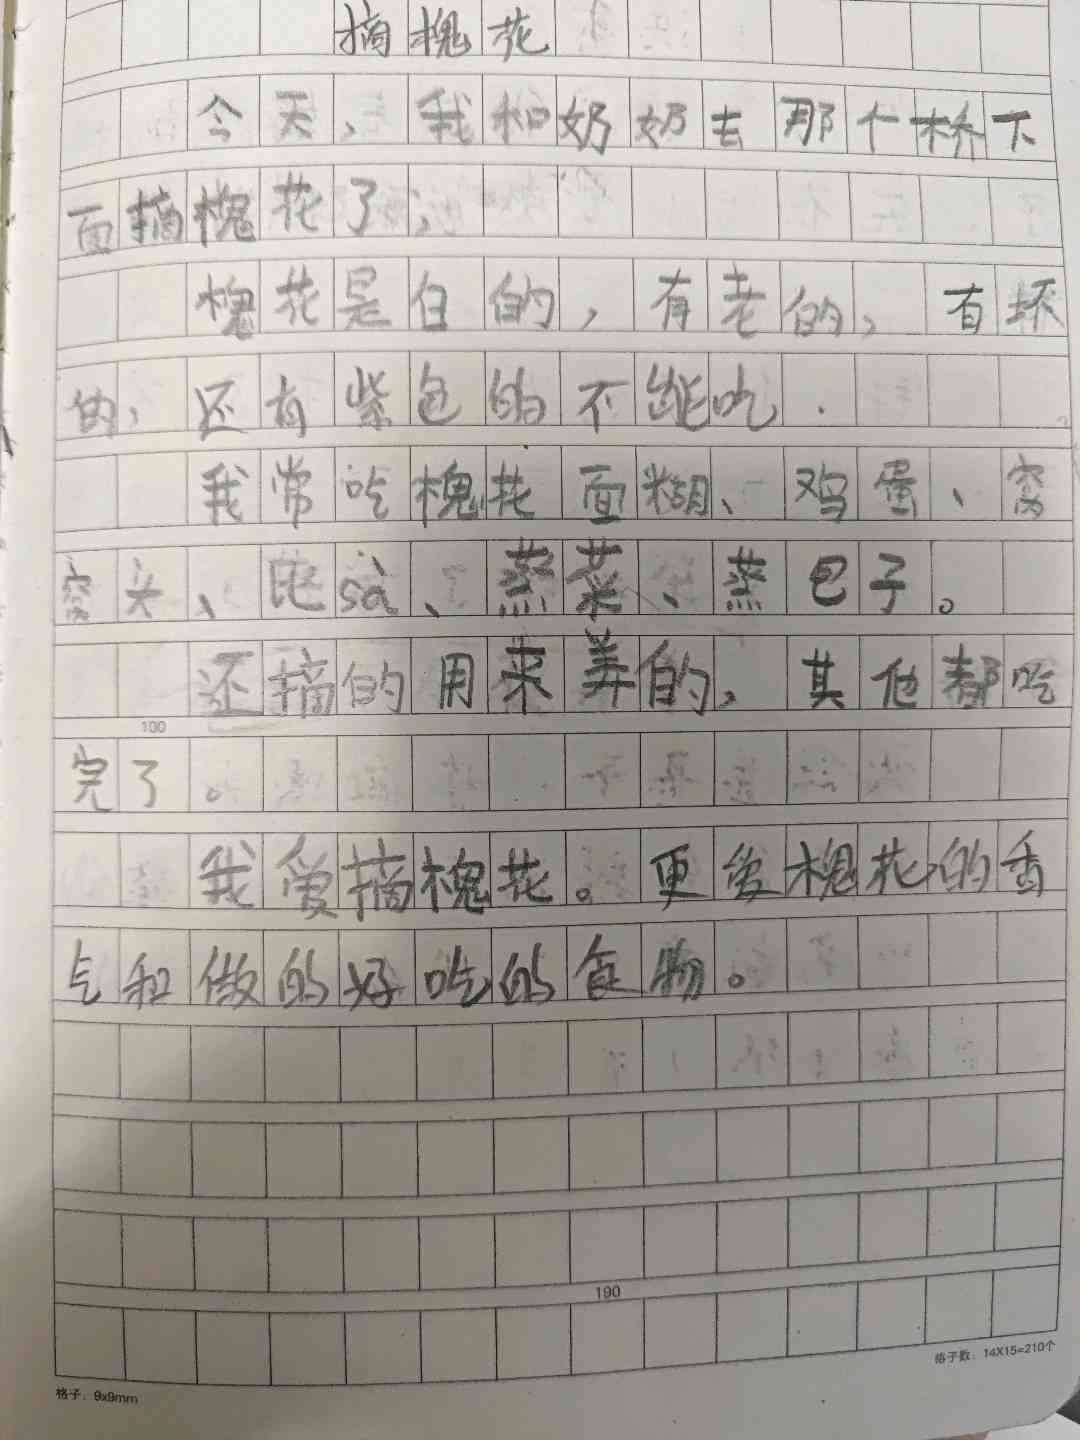 摘槐花
今天、我和奶奶去那个桥下
面摘槐花了，
槐花是白的，有老的，有坏
的，还有紫色的不能吃.
我常吃槐花面糊、鸡蛋、窝
窝头、比sà、蒸菜、蒸包子。
还摘的用来弄的，其他都吃
100
完了。
我爱摘槐花。更爱槐花的香
气和做的好吃的食物。
190
格子数：14X15=210个
格子：9x9mm